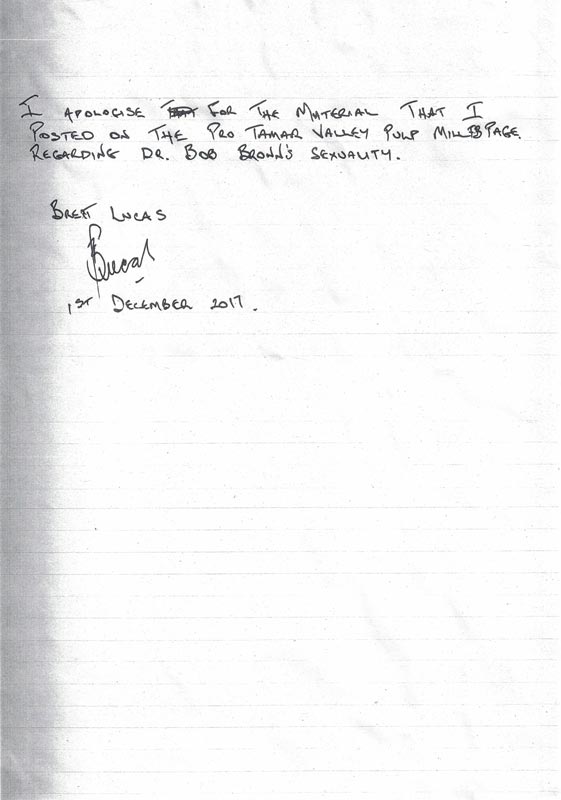 I APOLOGISE FOR THE MATERIAL THAT I
POSTED ON THE PRO TAMAR VALLEY PULP MILL PAGE
REGARDING DR. BOB BROWN'S SEXUALITY.
BRETT LUCAS
BLucas
1ST DECEMBER 2017.